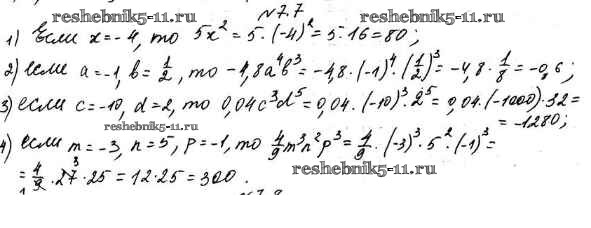 №7.7
reshebnik5-11.ru reshebnik5-11.ru
1) Если x=-4, то 5x² = 5·(-4)² = 5·16 = 80;
2) если a=-1, b=1/2, то -4,8a⁴b³ = -4,8·(-1)⁴·(1/2)³ = -4,8·1/8 = -0,6;
3) если c=-10, d=2, то 0,04c³d⁵ = 0,04·(-10)³·2⁵ = 0,04·(-1000)·32 =
= -1280;
reshebnik5-11.ru
4) если m=-3, n=5, p=-1, то 4/9m³n²p³ = 4/9·(-3)³·5²·(-1)³ =
reshebnik5-11.ru
= 4/9·27·25 = 12·25 = 300.